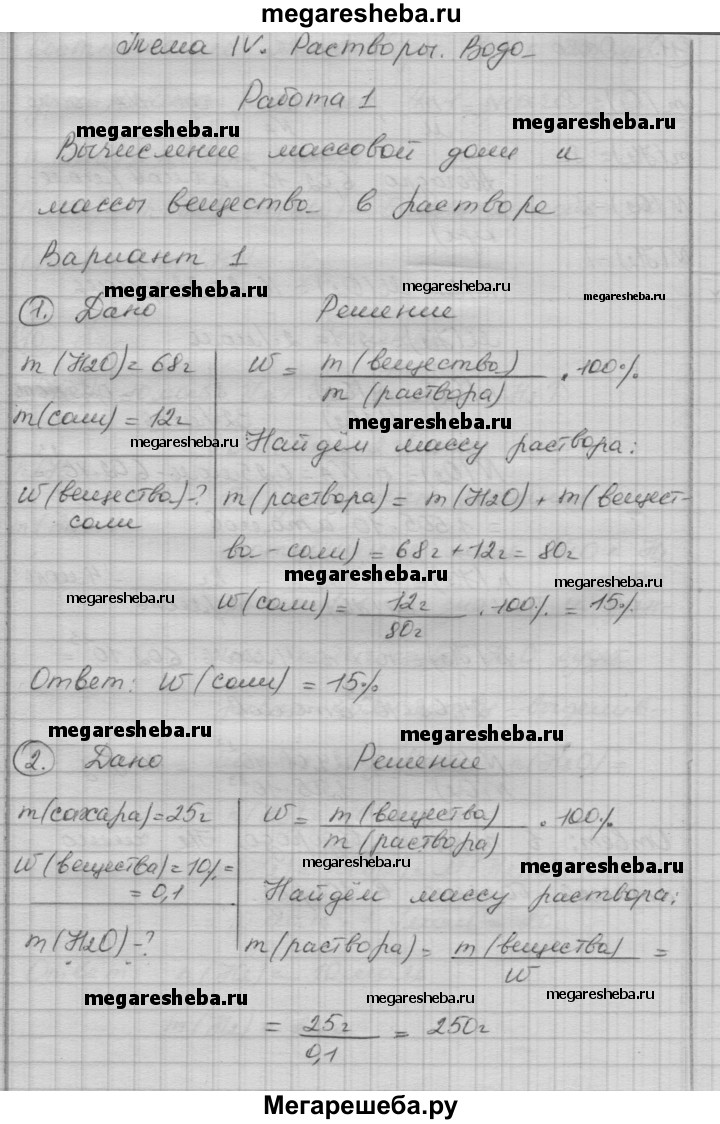 megaresheba.ru
Тема IV. Растворы. Водо-
Работа 1
megaresheba.ru megaresheba.ru
Вычисление массовой доли и
массы вещества в растворе
Вариант 1
megaresheba.ru megaresheba.ru megaresheba.ru
1. Дано Решение
m(H2O)=68г w = m(вещества) / m(раствора) · 100%
m(соли)=12г
megaresheba.ru megaresheba.ru
Найдём массу раствора:
w(вещества)-? m(раствора)= m(H2O)+m(вещест-
соли
ва-соли)=68г+12г=80г
megaresheba.ru megaresheba.ru
megaresheba.ru w(соли)= 12г / 80г · 100% = 15%
Ответ: w(соли) = 15%
megaresheba.ru megaresheba.ru
2. Дано Решение
m(сахара)=25г w= m(вещества) / m(раствора) · 100%
w(вещества)=10%=
=0,1
megaresheba.ru megaresheba.ru
Найдём массу раствора:
m(H2O)-? m(раствора)= m(вещества) / w =
megaresheba.ru megaresheba.ru megaresheba.ru
= 25г / 0,1 = 250г
megaresheba.ru
Мегарешеба.ру